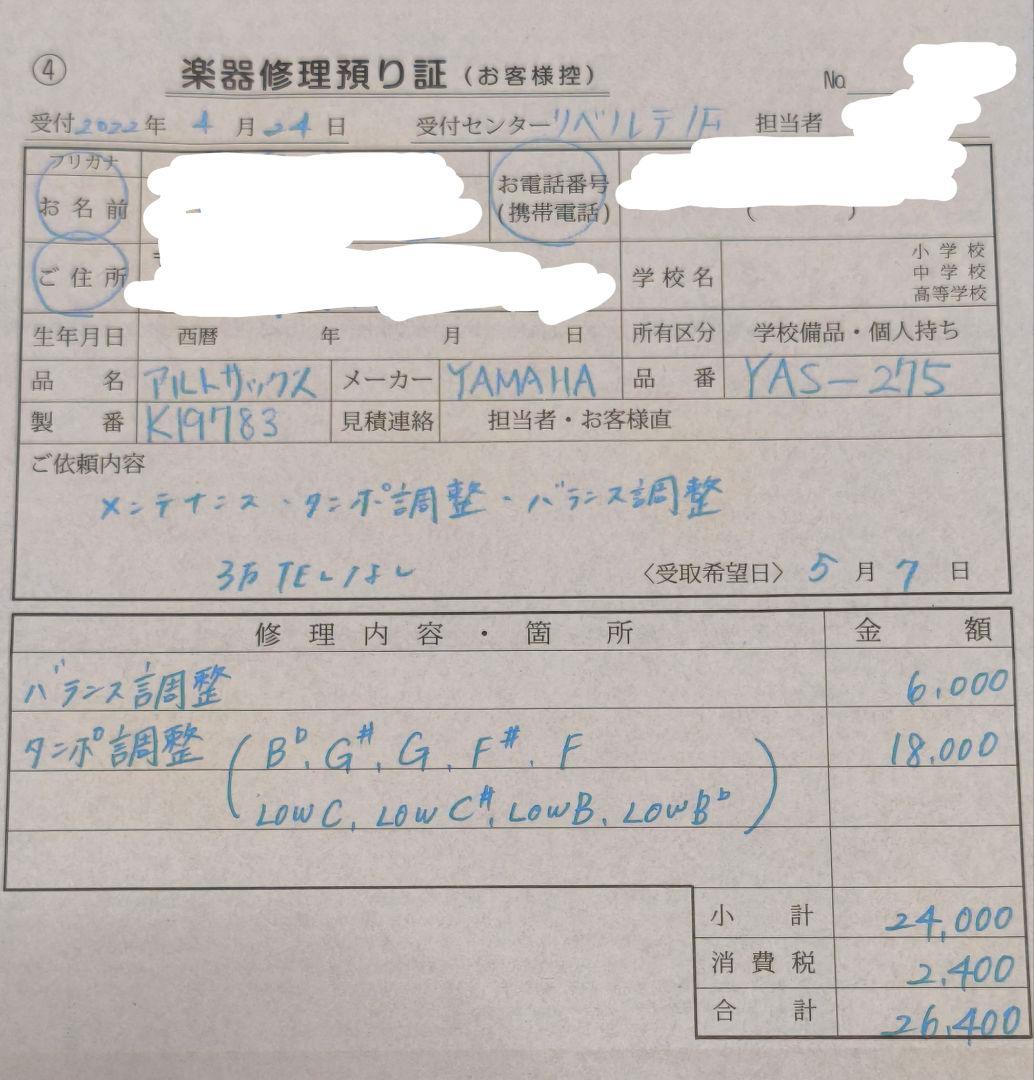 ④ 楽器修理預り証(お客様控) No.
受付2022年 4月24日 受付センターリベルテ1F 担当者
フリガナ
お名前 お電話番号
(携帯電話) ( )
ご住所 〒 学校名 小学校
中学校
高等学校
生年月日 西暦 年 月 日 所有区分 学校備品・個人持ち
品名 アルトサックス メーカー YAMAHA 品番 YAS-275
製番 K19783 見積連絡 担当者・お客様直
ご依頼内容
メンテナンス・タンポ調整・バランス調整
3万 TELなし 〈受取希望日〉 5月7日
修理内容・箇所 金額
バランス調整 6,000
タンポ調整 (B♭, G#, G, F#, F 18,000
LOW C, LOW C#, LOW B, LOW B♭)
小計 24,000
消費税 2,400
合計 26,400